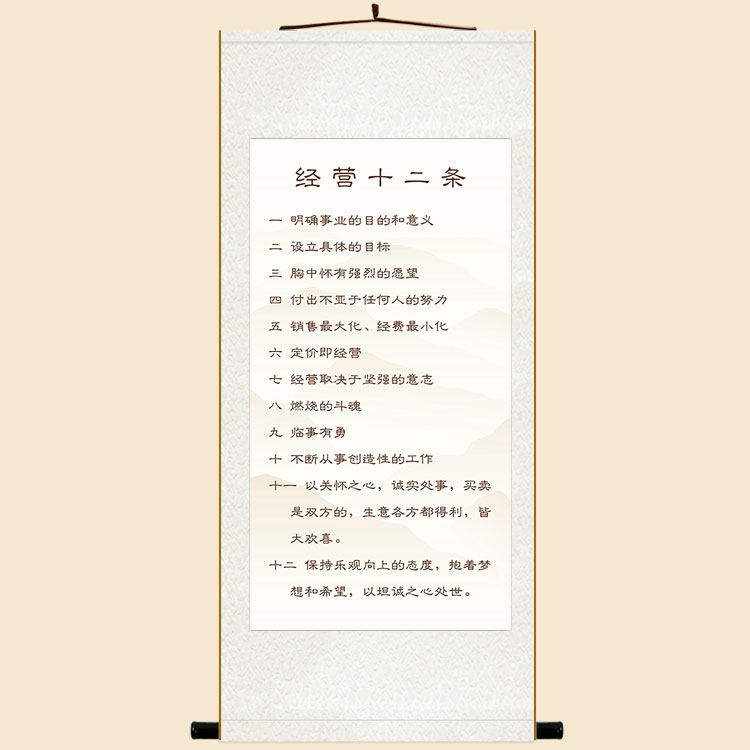 经营十二条
一 明确事业的目的和意义
二 设立具体的目标
三 胸中怀有强烈的愿望
四 付出不亚于任何人的努力
五 销售最大化、经费最小化
六 定价即经营
七 经营取决于坚强的意志
八 燃烧的斗魂
九 临事有勇
十 不断从事创造性的工作
十一 以关怀之心，诚实处事，买卖
是双方的，生意各方都得利，皆
大欢喜。
十二 保持乐观向上的态度，抱着梦
想和希望，以坦诚之心处世。